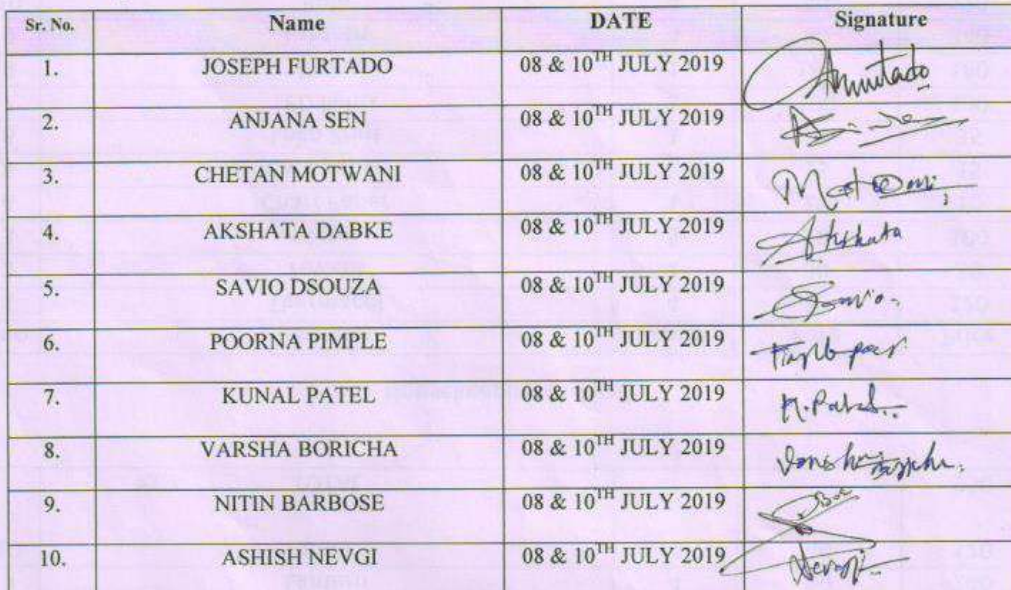 Sr. No. Name DATE Signature
1. JOSEPH FURTADO 08 & 10TH JULY 2019
2. ANJANA SEN 08 & 10TH JULY 2019
3. CHETAN MOTWANI 08 & 10TH JULY 2019 Motwani
4. AKSHATA DABKE 08 & 10TH JULY 2019 Akshata
5. SAVIO DSOUZA 08 & 10TH JULY 2019 Savio
6. POORNA PIMPLE 08 & 10TH JULY 2019
7. KUNAL PATEL 08 & 10TH JULY 2019 K. Patel
8. VARSHA BORICHA 08 & 10TH JULY 2019
9. NITIN BARBOSE 08 & 10TH JULY 2019
10. ASHISH NEVGI 08 & 10TH JULY 2019 Nevgi